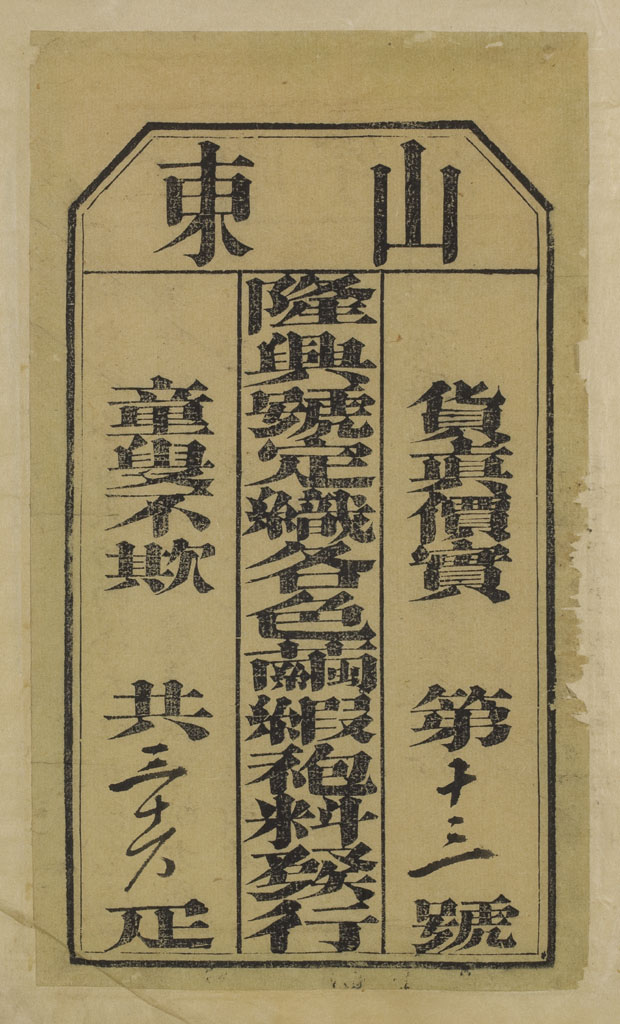 山東
貨真價實 第十三號
隆興號定織各色繭緞袍料發行
童叟不欺 共三十六疋